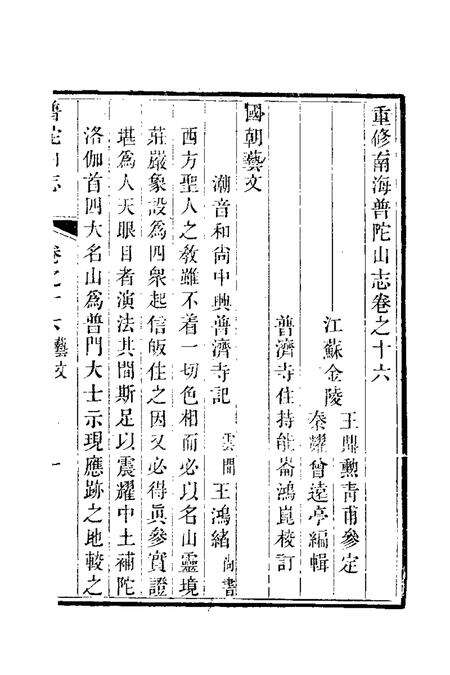 重修南海普陀山志卷之十六
王鼎勲青甫參定
江蘇金陵
秦耀曾遠亭編輯
普濟寺住持能崙鴻崑校訂
國朝藝文
潮音和尚中興普濟寺記
雲間王鴻緒尚書
西方聖人之敎雖不着一切色相而必以名山靈境
莊嚴象設為四衆起信皈住之因又必得眞參實證
堪為人天眼目者演法其間斯足以震耀中土補陀
洛伽首四大名山為普門大士示現應跡之地較之
普陀山志
卷之十六藝文
一